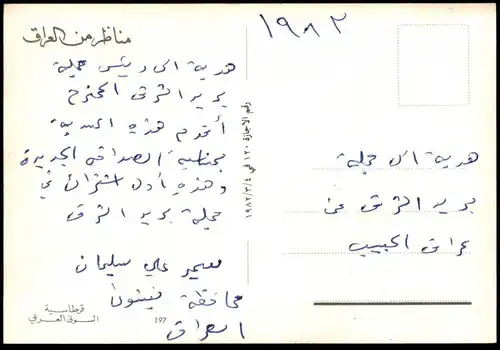 مناظر من العراق
١٩٨٢
هدية الى رئيس مجلة
بريد الشرق المحترم
أقدم هذه الهدية
الصداقة الجديدة
وهذه أول اشتراك في
مجلة بريد الشرق
معمر علي سليمان
محافظة نينوى
العراق
رقم الاجازة ١٢٠ في ١٩٨٢/٢/٤
هدية الى مجلة
بريد الشرق من
عراق الحبيب
قرطاسية
السوق العربي
197